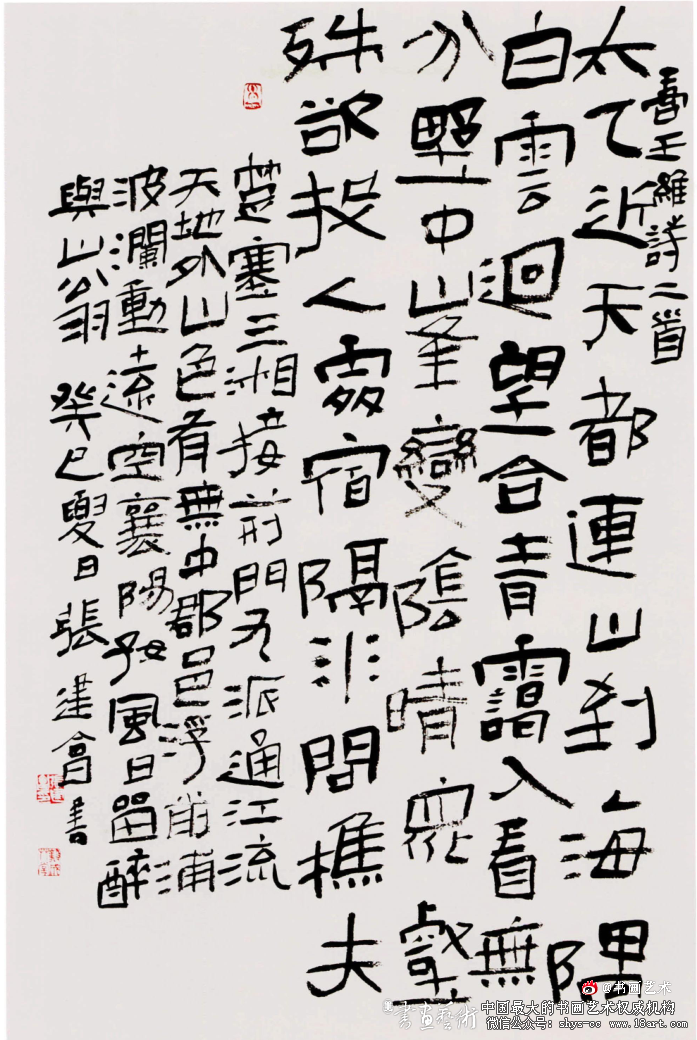 書王維詩二首
太乙近天都連山到海隅
白雲迴望合青靄入看無
分野中峰變陰晴眾壑
殊欲投人處宿隔非問樵夫
楚塞三湘接荊門九派通江流
天地外山色有無中郡邑浮前浦
波瀾動遠空襄陽好風日留醉
與山翁 癸巳夏日張建會書
@书画艺术
書畫藝術 中国最大的书画艺术权威机构
微信公众号：shys-cc www.18art.com